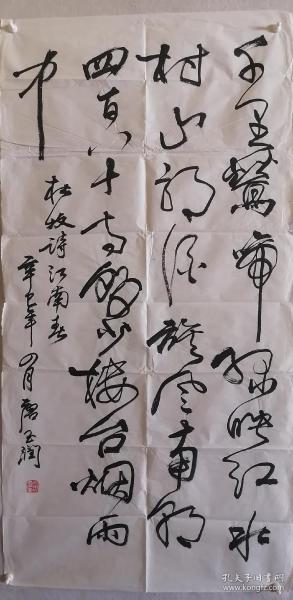 千里鶯啼绿映红水
村山郭酒旗风南朝
四百八十寺多少楼台烟雨
中
杜牧诗江南春
辛巳年四月唐玉润
孔夫子旧书网
www.kongfz.com